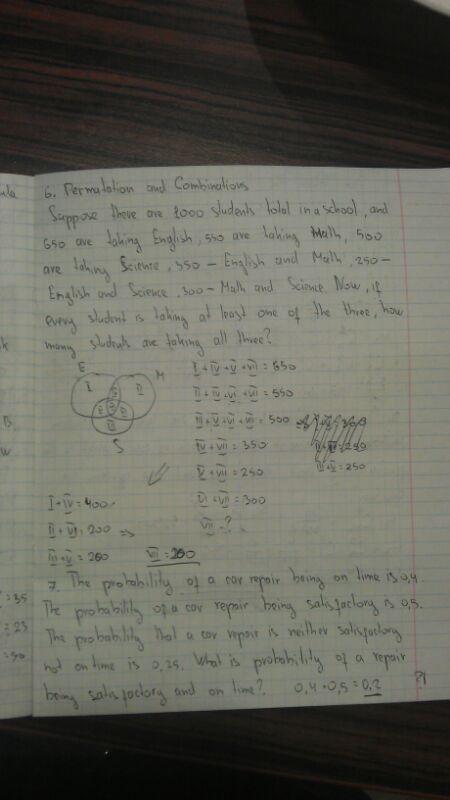 6. Permutation and Combinations
Suppose there are 1000 students total in a school, and
650 are taking English, 550 are taking Math, 500
are taking Science, 350 - English and Math, 250 -
English and Science, 300 - Math and Science. Now, if
every student is taking at least one of the three, how
many students are taking all three?
E
M
S
I
II
I + IV + V + VII = 650
II + IV + VI + VII = 550
III + V + VI + VII = 500
IV + VII = 350
V + VII = 250
VI + VII = 300
VII - ?
= 250
= 250
I + IV = 400
II + VI = 200 =>
III + V = 200
VII = 200
7. The probability of a car repair being on time is 0,4.
The probability of a car repair being satisfactory is 0,5.
The probability that a car repair is neither satisfactory
not on time is 0,25. What is probability of a repair
being satisfactory and on time? 0,4 * 0,5 = 0,2 ?!
= 35
= 23
= 50